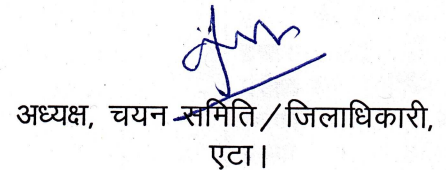 अध्यक्ष, चयन समिति / जिलाधिकारी,
एटा।